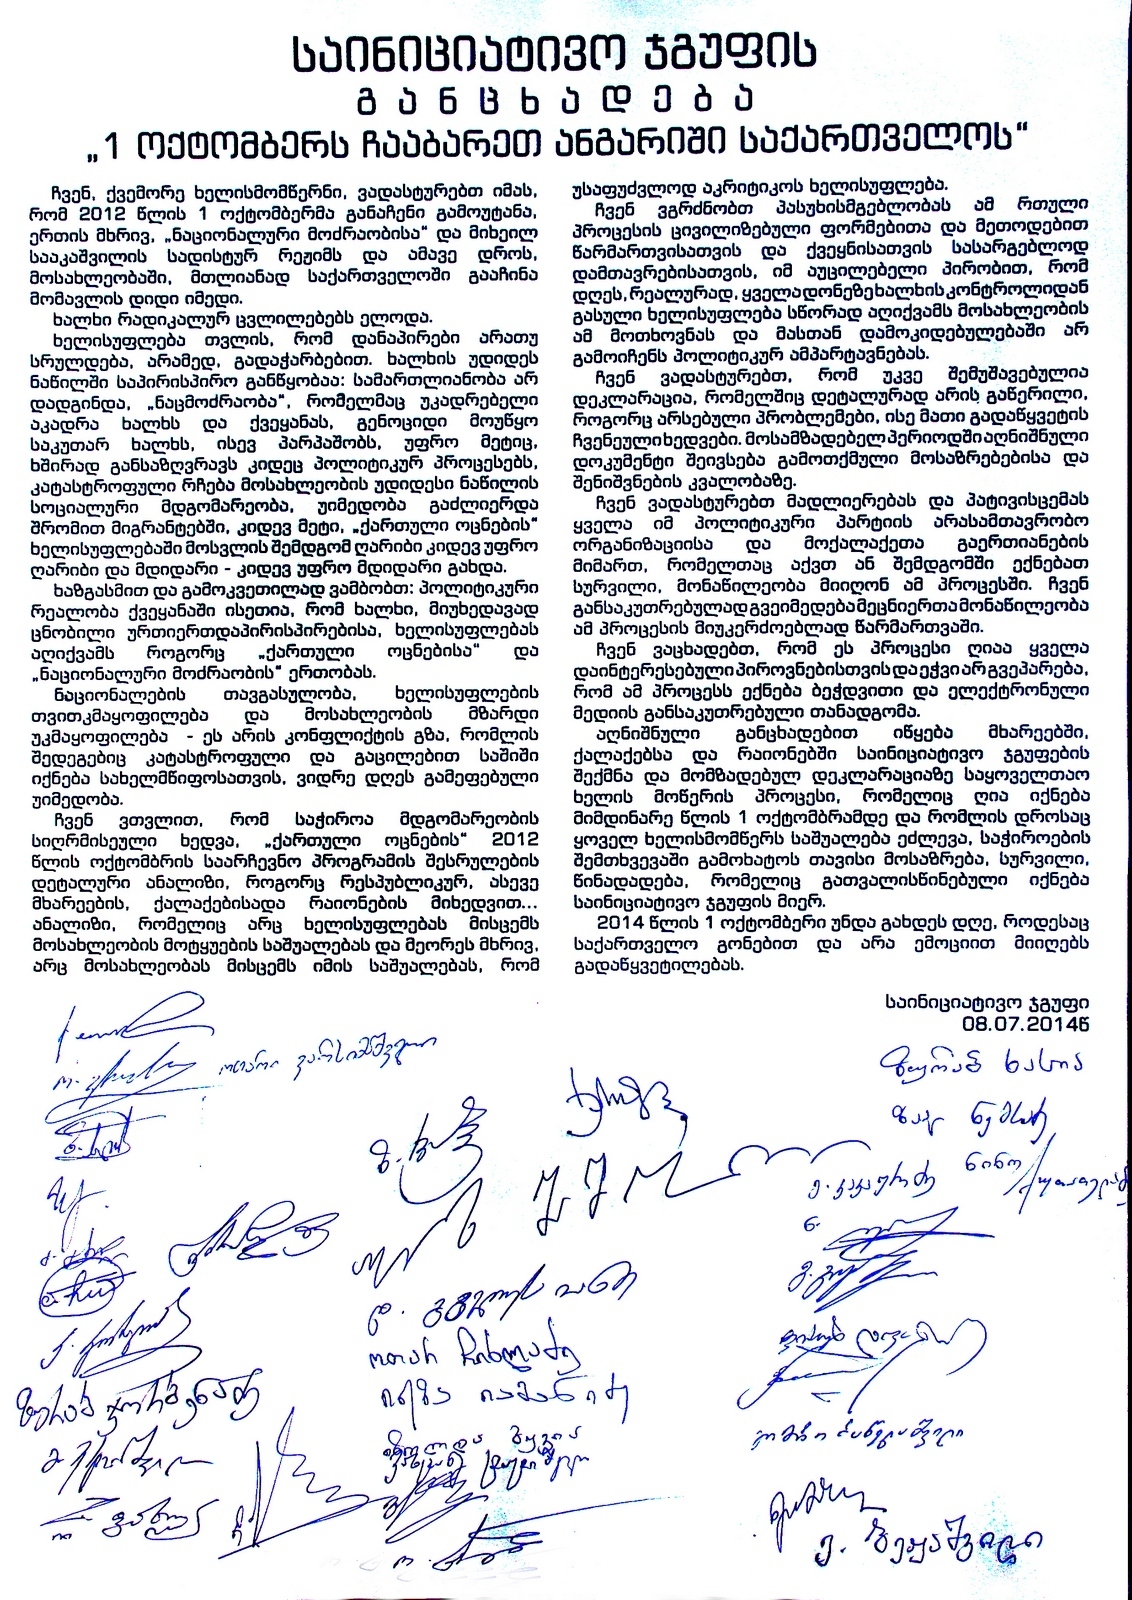 საინიციატივო ჯგუფის
განცხადება
„1 ოქტომბერს ჩააბარეთ ანგარიში საქართველოს“
ჩვენ, ქვემორე ხელისმომწერნი, ვადასტურებთ იმას,
რომ 2012 წლის 1 ოქტომბერმა განაჩენი გამოუტანა,
ერთის მხრივ, „ნაციონალური მოძრაობისა“ და მიხეილ
სააკაშვილის სადისტურ რეჟიმს და ამავე დროს,
მოსახლეობაში, მთლიანად საქართველოში გააჩინა
მომავლის დიდი იმედი.
ხალხი რადიკალურ ცვლილებებს ელოდა.
ხელისუფლება თვლის, რომ დანაპირები არათუ
სრულდება, არამედ, გადაჭარბებით. ხალხის უდიდეს
ნაწილში საპირისპირო განწყობაა: სამართლიანობა არ
დადგინდა, „ნაცმოძრაობა“, რომელმაც უკადრებელი
აკადრა ხალხს და ქვეყანას, გენოციდი მოუწყო
საკუთარ ხალხს, ისევ პარპაშობს, უფრო მეტიც,
ხშირად განსაზღვრავს კიდეც პოლიტიკურ პროცესებს,
კატასტროფული რჩება მოსახლეობის უდიდესი ნაწილის
სოციალური მდგომარეობა, უიმედობა გაძლიერდა
შრომით მიგრანტებში, კიდევ მეტი, „ქართული ოცნების“
ხელისუფლებაში მოსვლის შემდგომ ღარიბი კიდევ უფრო
ღარიბი და მდიდარი - კიდევ უფრო მდიდარი გახდა.
ხაზგასმით და გამოკვეთილად ვამბობთ: პოლიტიკური
რეალობა ქვეყანაში ისეთია, რომ ხალხი, მიუხედავად
ცნობილი ურთიერთდაპირისპირებისა, ხელისუფლებას
აღიქვამს როგორც „ქართული ოცნებისა“ და
„ნაციონალური მოძრაობის“ ერთობას.
ნაციონალების თავგასულობა, ხელისუფლების
თვითკმაყოფილება და მოსახლეობის მზარდი
უკმაყოფილება - ეს არის კონფლიქტის გზა, რომლის
შედეგებიც კატასტროფული და გაცილებით საშიში
იქნება სახელმწიფოსათვის, ვიდრე დღეს გამეფებული
უიმედობა.
ჩვენ ვთვლით, რომ საჭიროა მდგომარეობის
სიღრმისეული ხედვა, „ქართული ოცნების“ 2012
წლის ოქტომბრის საარჩევნო პროგრამის შესრულების
დეტალური ანალიზი, როგორც რესპუბლიკურ, ასევე
მხარეების, ქალაქებისადა რაიონების მიხედვით...
ანალიზი, რომელიც არც ხელისუფლებას მისცემს
მოსახლეობის მოტყუების საშუალებას და მეორეს მხრივ,
არც მოსახლეობას მისცემს იმის საშუალებას, რომ
უსაფუძვლოდ აკრიტიკოს ხელისუფლება.
ჩვენ ვგრძნობთ პასუხისმგებლობას ამ რთული
პროცესის ცივილიზებული ფორმებითა და მეთოდებით
წარმართვისათვის და ქვეყნისათვის სასარგებლოდ
დამთავრებისათვის, იმ აუცილებელი პირობით, რომ
დღეს, რეალურად, ყველა დონეზე ხალხის კონტროლიდან
გასული ხელისუფლება სწორად აღიქვამს მოსახლეობის
ამ მოთხოვნას და მასთან დამოკიდებულებაში არ
გამოიჩენს პოლიტიკურ ამპარტავნებას.
ჩვენ ვადასტურებთ, რომ უკვე შემუშავებულია
დეკლარაცია, რომელშიც დეტალურად არის გაწერილი,
როგორც არსებული პრობლემები, ისე მათი გადაწყვეტის
ჩვენეული ხედვები. მოსამზადებელ პერიოდში აღნიშნული
დოკუმენტი შეივსება გამოთქმული მოსაზრებებისა და
შენიშვნების კვალობაზე.
ჩვენ ვადასტურებთ მადლიერებას და პატივისცემას
ყველა იმ პოლიტიკური პარტიის არასამთავრობო
ორგანიზაციისა და მოქალაქეთა გაერთიანების
მიმართ, რომელთაც აქვთ ან შემდგომში ექნებათ
სურვილი, მონაწილეობა მიიღონ ამ პროცესში. ჩვენ
განსაკუთრებულად გვეიმედება მეცნიერთა მონაწილეობა
ამ პროცესის მიუკერძოებლად წარმართვაში.
ჩვენ ვაცხადებთ, რომ ეს პროცესი ღიაა ყველა
დაინტერესებული პიროვნებისთვის და ეჭვი არ გვეპარება,
რომ ამ პროცესს ექნება ბეჭდვითი და ელექტრონული
მედიის განსაკუთრებული თანადგომა.
აღნიშნული განცხადებით იწყება მხარეებში,
ქალაქებსა და რაიონებში საინიციატივო ჯგუფების
შექმნა და მომზადებულ დეკლარაციაზე საყოველთაო
ხელის მოწერის პროცესი, რომელიც ღია იქნება
მიმდინარე წლის 1 ოქტომბრამდე და რომლის დროსაც
ყოველ ხელისმომწერს საშუალება ეძლევა, საჭიროების
შემთხვევაში გამოხატოს თავისი მოსაზრება, სურვილი,
წინადადება, რომელიც გათვალისწინებული იქნება
საინიციატივო ჯგუფის მიერ.
2014 წლის 1 ოქტომბერი უნდა გახდეს დღე, როდესაც
საქართველო გონებით და არა ემოციით მიიღებს
გადაწყვეტილებას.
საინიციატივო ჯგუფი
08.07.2014წ
ზურაბ ხასია
ნინო
ოთარ ჩიხლაძე